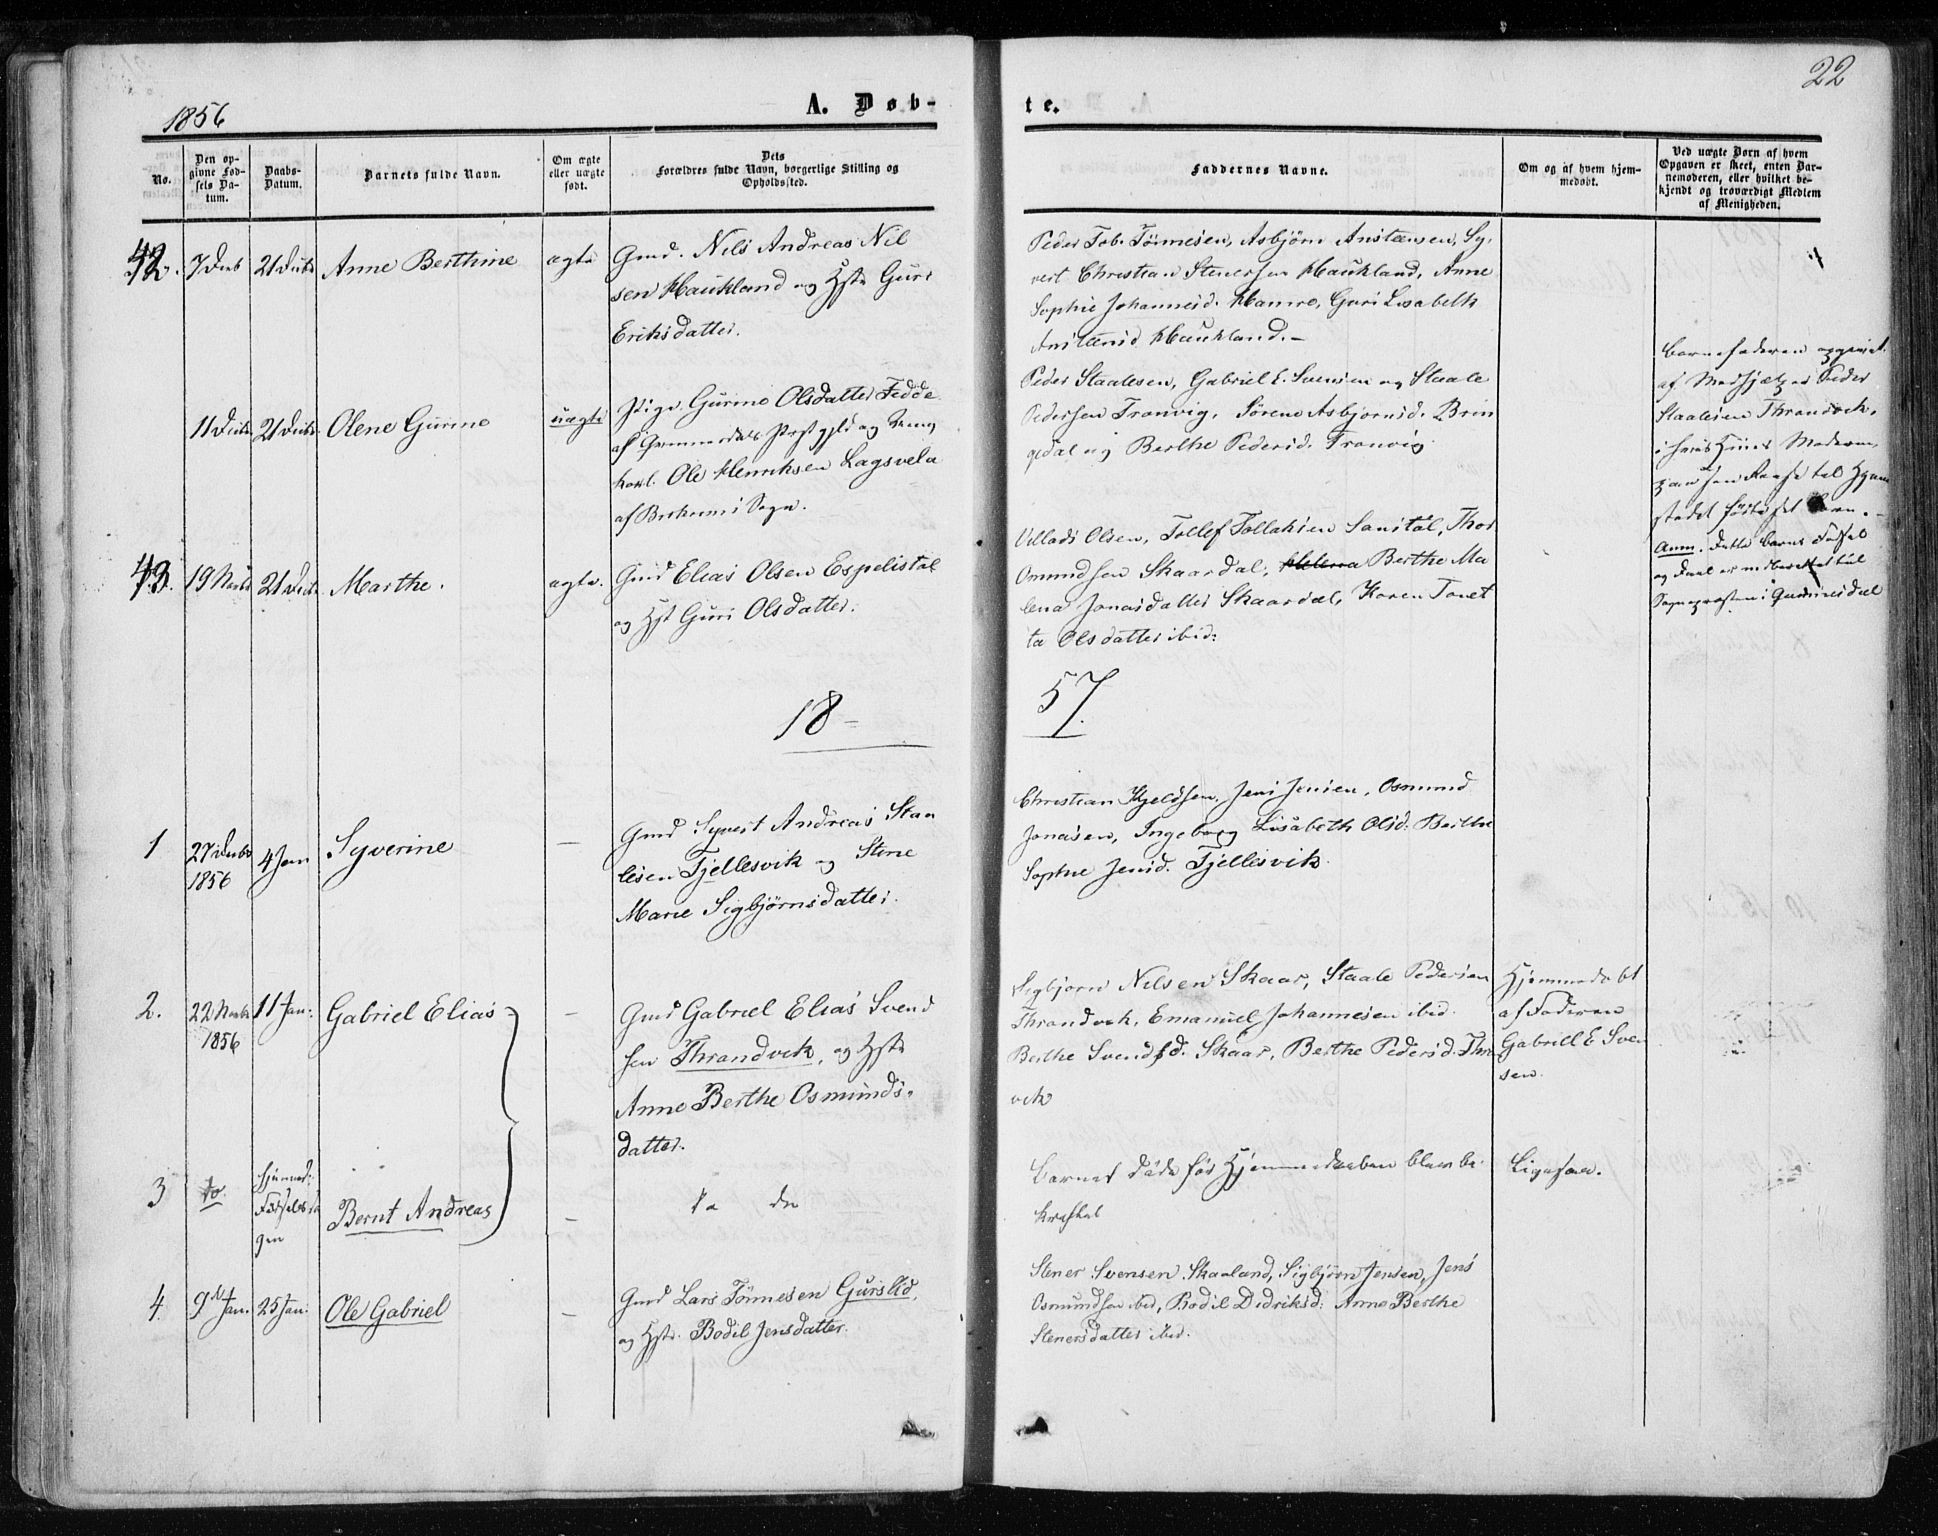 22
1856
A. Døb-
te.
No.
Den op-
givne Fød-
sels Da-
tum.
Daabs-
Datum.
Barnets fulde Navn.
Om ægte
eller uægte
født.
Dets
Forældres fulde Navn, borgerlige Stilling og
Opholdssted.
Faddernes Navne.
Om og af hvem hjem-
medøbt.
Ved uægte Børn af hvem
Opgaven er skeet, enten Bar-
nemoderen, eller hvilket be-
kjendt og troværdigt Medlem
af Menigheden.
42.
7 Decb
21 Decb
Anne Berthine
ægte
Gmd. Nils Andreas Nil
sen Haukland og Hst. Guri
Eriksdatter.
Peder Tob. Tønnesen, Asbjørn Anstensen, Sy.
vert Christian Stenersen Haukland, Anne
Sophie Johannesd. Hamre, Guri Lisabeth
Haukland.-
11 Decb.
21 Decb.
Olene Gurine
uægte
Pige Gurine Olsdatter Fedde
af Præstgjeld og Ung
karl. Ole Henriksen Lagsvela
af Sogn.
Peder Staalesen, Gabriel E. Svensen og Staale
Pedersen Tranvig, Sørene Asbjørnsd. Brin
gedal og Berthe Pedersd. Tranvig
Barnefaderen opgivet
af Peder
Staalesen Thrandvik,
i hvis Huus Moderen
paa sin Reise til Hjem
stedet fødte sit Barn.-
Anm. Dette Barns Fødsel
og Daab er indberettet til
Sognepræsten i
43.
19 Novb
21 Decb.
Marthe.
ægte.
Gmd Elias Olsen Espelistøl
og Hst Guri Olsdatter.
Villads Olsen, Tollef Tollaksen Sanstøl, Thor
Osmundsen Skaardal, Helena Berthe Ma
lena Jonasdatter Skaardal, Karen Tonet
ta Olsdatter ibid:
18-
57.
1
27 Decb
1856
4 Jan
Syverine
-
Gmd Syvert Andreas Staa
lesen Fjellesvik og Stine
Marie Sigbjørnsdatter.
Christian Kjeldsen, Jens Jensen, Osmund
Jonasen, Ingeborg Lisabeth Olsd. Berthe
Sophie Jensd. Fjellesvik.
2.
22 Novb
1856
11 Jan:
Gabriel Elias
-
Gmd Gabriel Elias Svend
sen Thrandvik, og Hst.
Anne Berthe Osmunds-
datter.
Sigbjørn Nilsen Skaar, Staale Pedersen
Thrandvik, Emanuel Johannesen ibid.
Berthe Svendsd. Skaar, Berthe Pedersd. Thr
vik
Hjemmedøbt
af Faderen
Gabriel E Sven
sen.
3
do.
Hjemmed:
Fødselsda
gen
Bernt Andreas
-
do
Barnet døde før Hjemmedaaben blev be-
kræftet
Ligesaa.
4.
9de Jan.
25 Jan:
Ole Gabriel
-
Gmd Lars Tønnesen Gurslid,
og Hst. Bodil Jensdatter.
Stener Svensen Skaaland, Sigbjørn Jensen, Jens
Osmundsen ibid, Bodil Didriksd: Anne Berthe
Stenersdatter ibid.